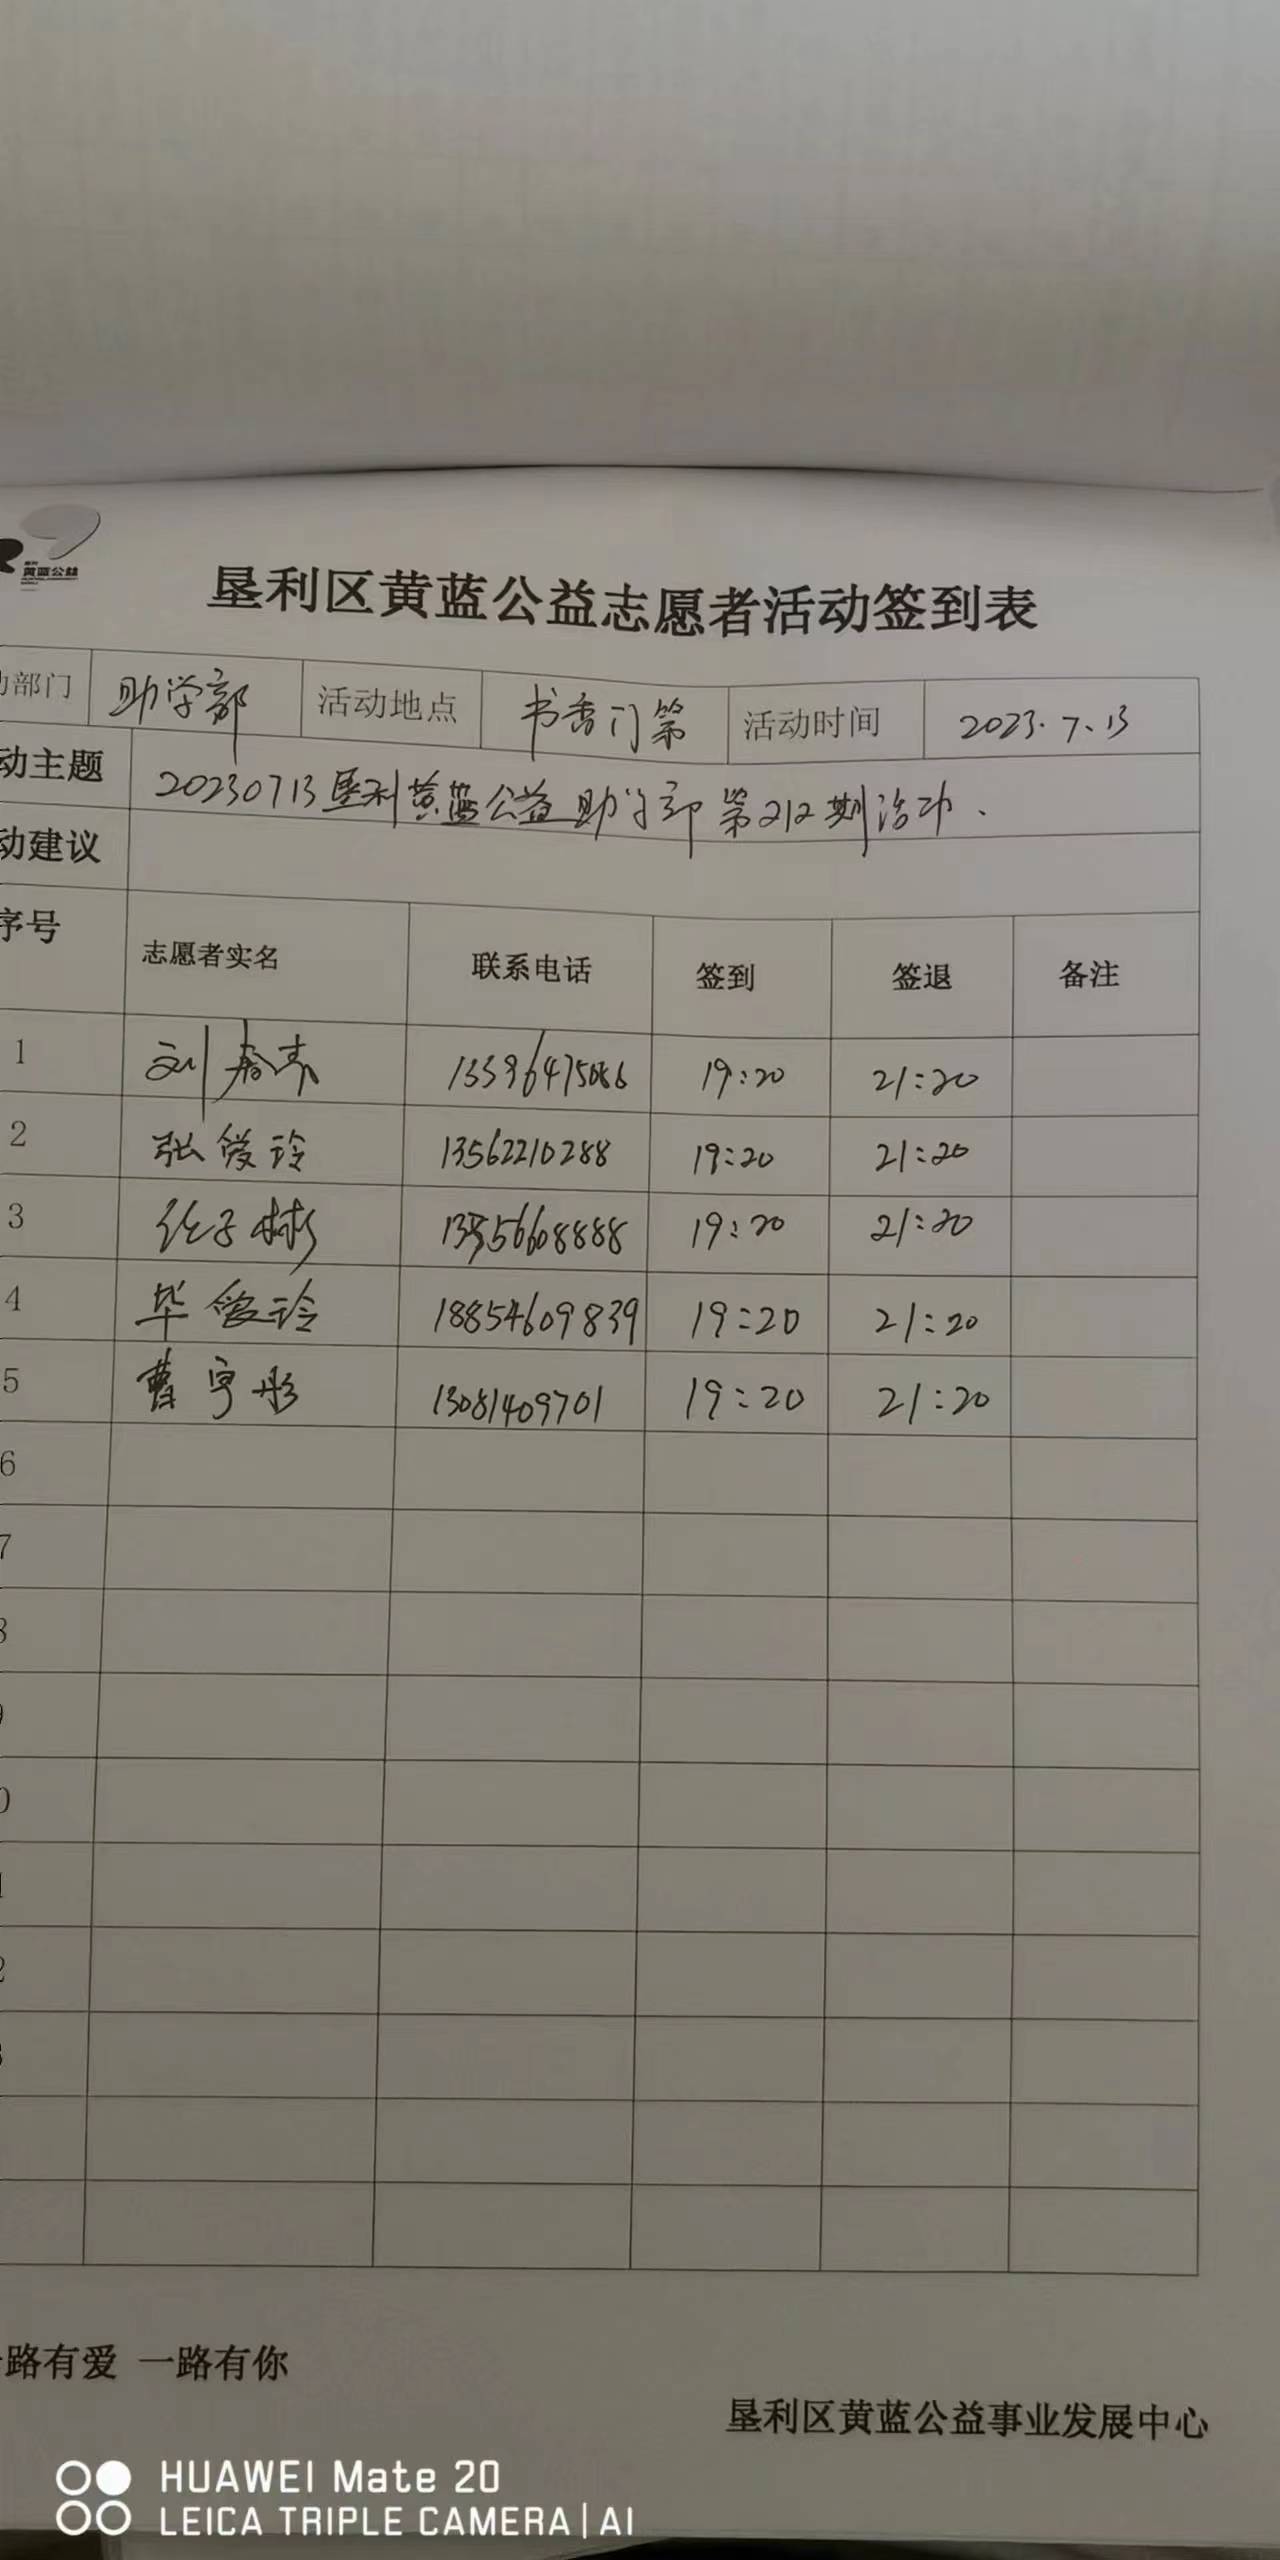 黄蓝公益
垦利区黄蓝公益志愿者活动签到表
动部门 助学部 活动地点 书香门第 活动时间 2023.7.13
动主题 20230713垦利黄蓝公益助学部第212期活动.
动建议
序号 志愿者实名 联系电话 签到 签退 备注
1 刘 19:20 21:20
2 张爱玲 13562210288 19:20 21:20
3 任子彬 19:20 21:20
4 毕爱玲 18854609839 19:20 21:20
5 曹宇彤 13081409701 19:20 21:20
6
7
8
9
0
1
2
3
路有爱 一路有你
垦利区黄蓝公益事业发展中心
HUAWEI Mate 20
LEICA TRIPLE CAMERA | AI